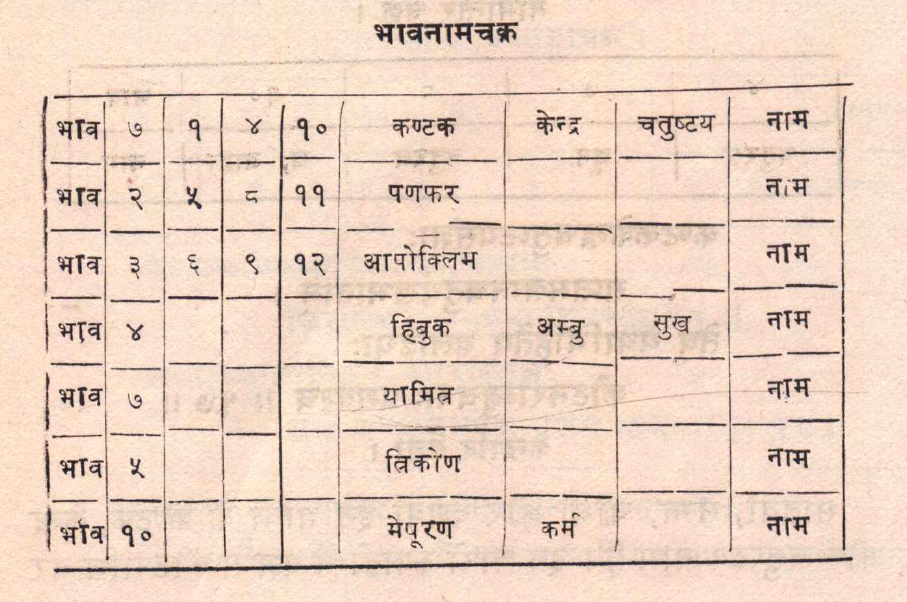 भावनामचक्र
भाव ७ १ ४ १० कण्टक केन्द्र चतुष्टय नाम
भाव २ ५ ८ ११ पणफर नाम
भाव ३ ६ ९ १२ आपोक्लिम नाम
भाव ४ हिबुक अम्बु सुख नाम
भाव ७ यामित्र नाम
भाव ५ त्रिकोण नाम
भाव १० मेषूरण कर्म नाम